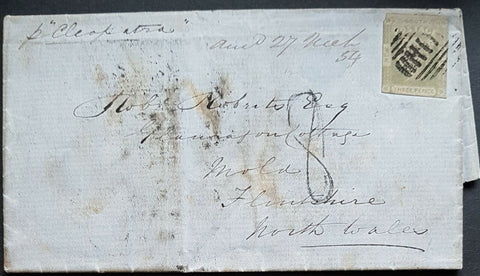 p "Cleopatra"
27
54
THREE PENCE
Robt Roberts Esq
Cottage
8
Mold
Flintshire
North Wales